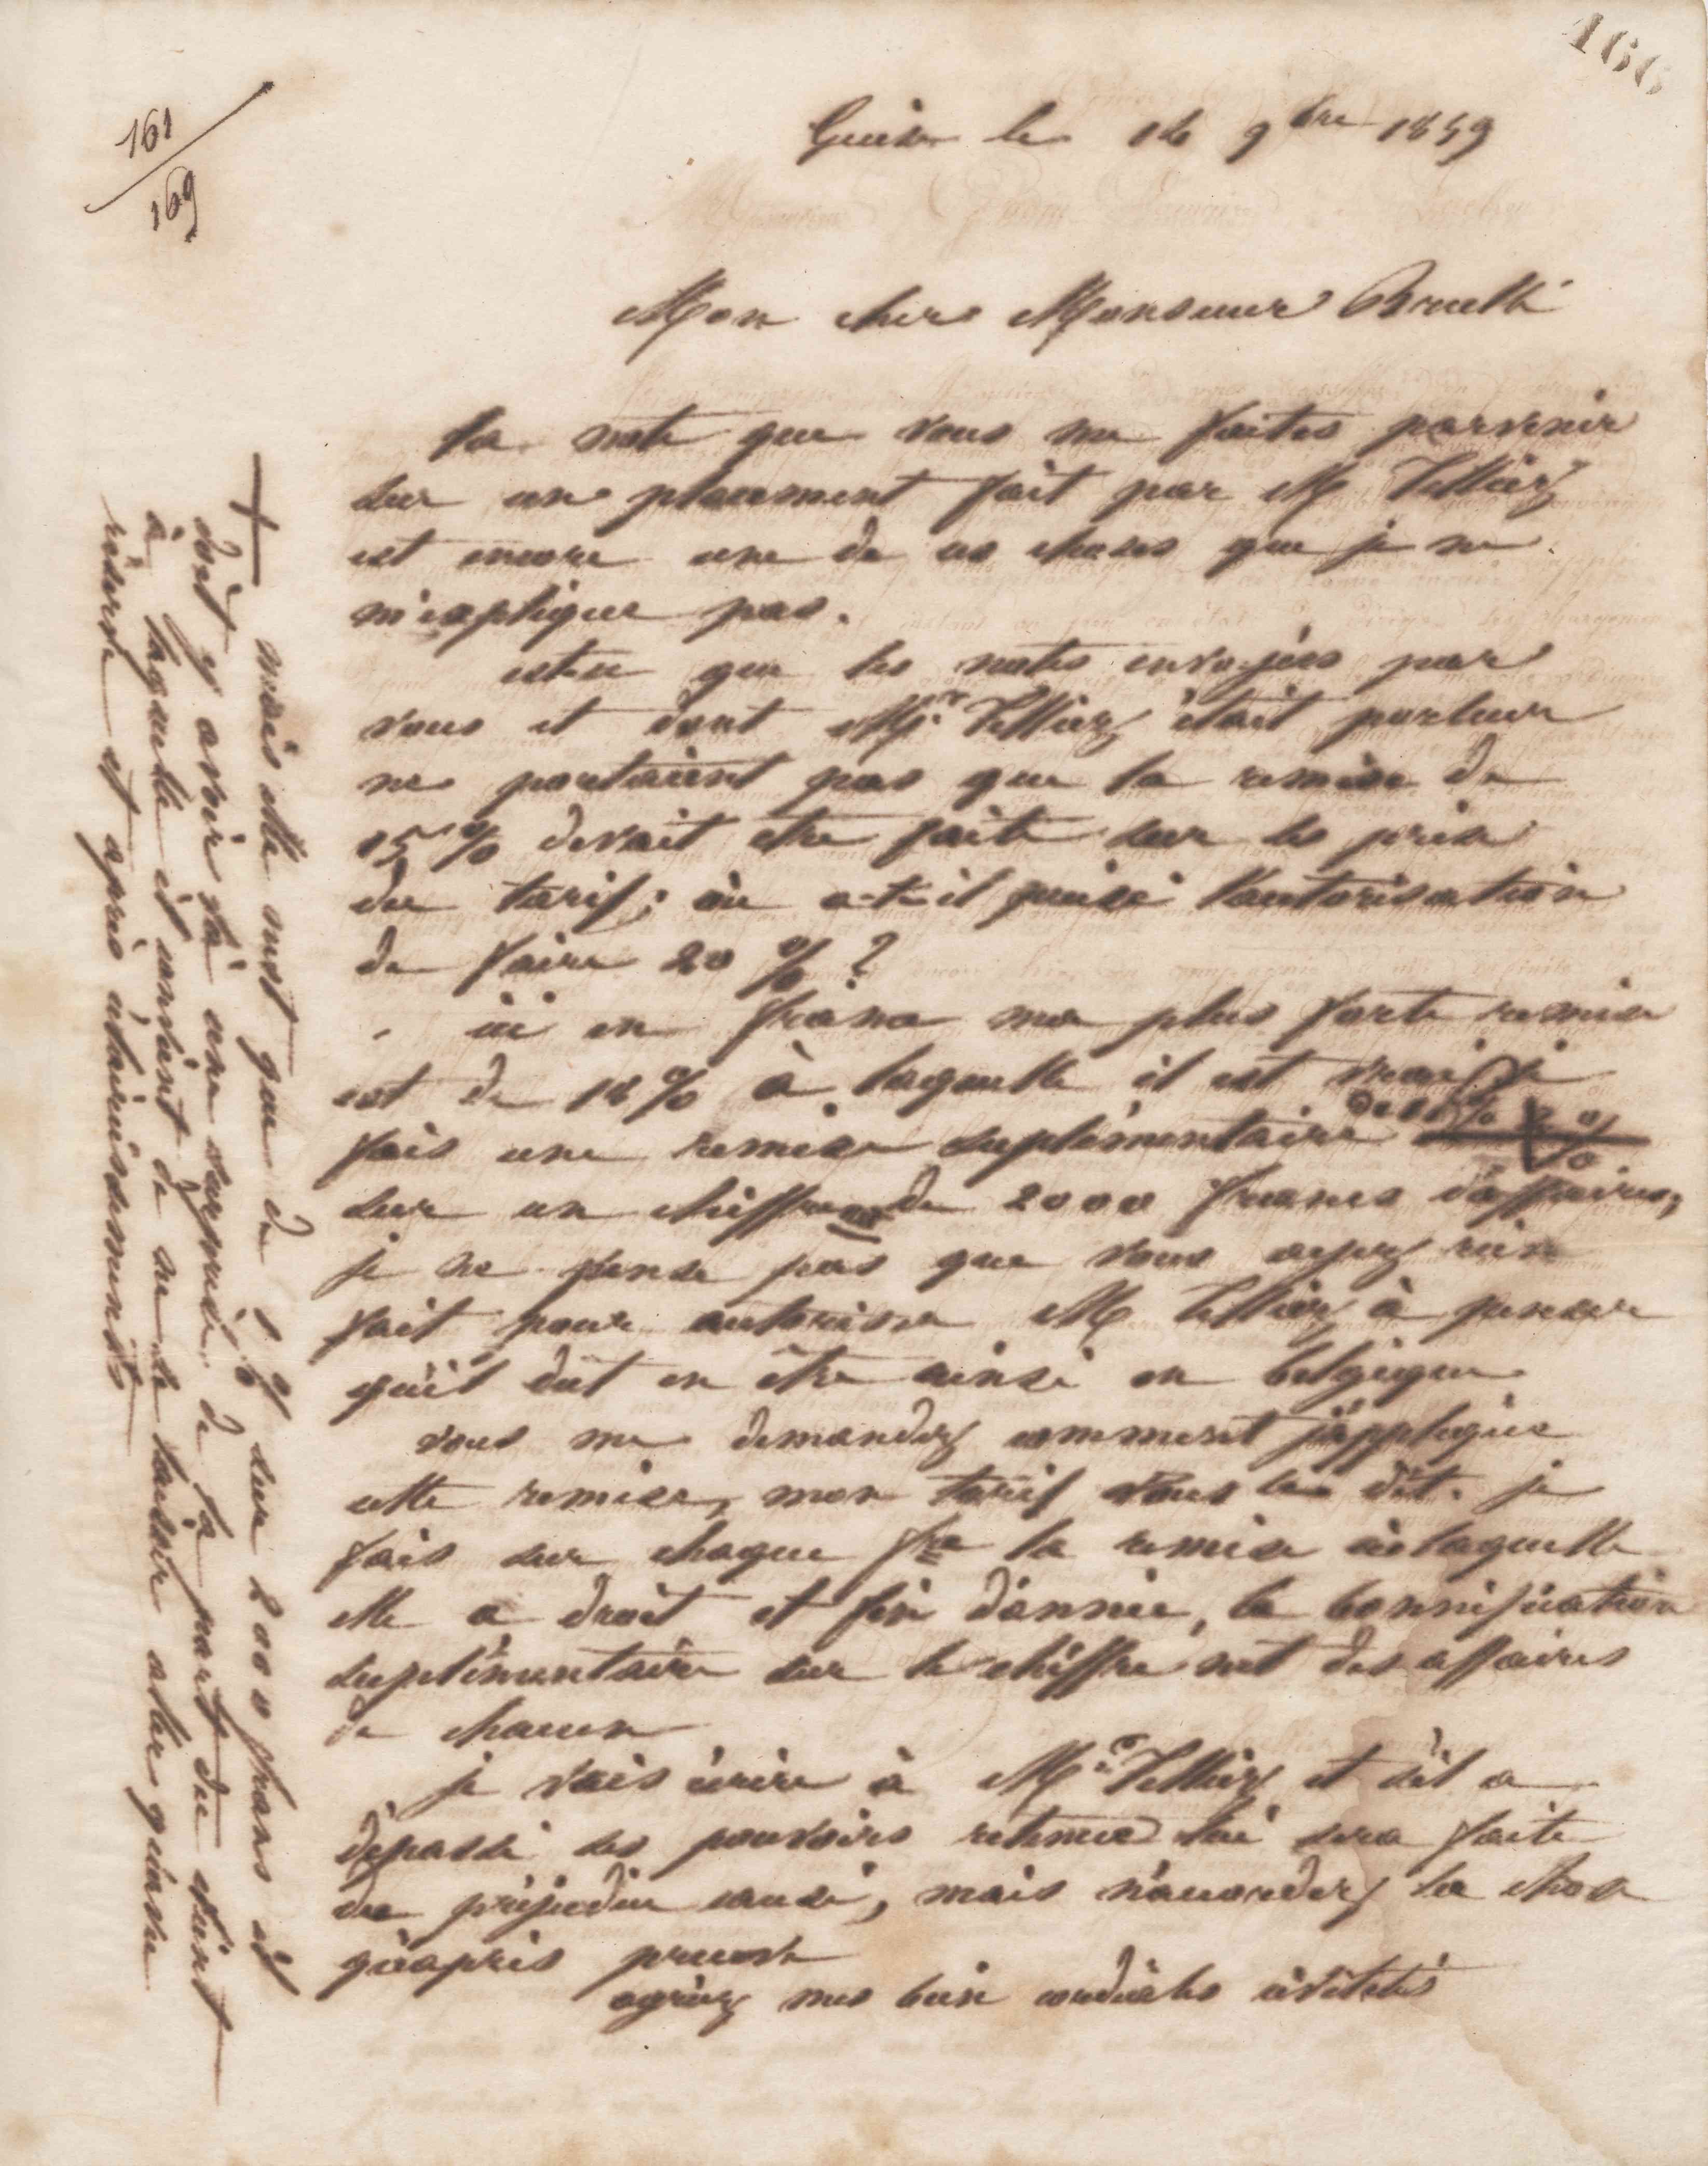 166
161
169
Guise le 16 9bre 1859
Mon cher Monsieur Brullé
la note que vous me faites parvenir
sur un placement fait par M Tellier
est encore une de ces choses que je ne
m'explique pas.
estce que les notes envoyées par
vous et dont Mr. Tellier était porteur
ne portaient pas que la remise de
15 % devait etre faite sur le prix
du tarif; où a-t-il puisé l'autorisation
de faire 20 % ?
ici en france ma plus forte remise
est de 18 % à laquelle il est vrai je
fais une remise suplémentaire
sur un chiffre de 2000 francs d'affaires,
je ne pense pas que vous ayez rien
fait pour autoriser M Tellier à penser
qu'il dut en être ainsi en belgique
vous me demandez comment j'applique
cette remise, mon tarif vous le dit. je
fais sur chaque fre la remise à laquelle
elle a droit et fin d'année, la bonnification
suplémentaire sur le chiffre net des affaires
de chacun
je vais écrire à Mr. Tellier et s'il a
dépassé ses pouvoirs retenue lui sera faite
du préjudice causé, mais n'accordez la chose
qu'après preuve
agréez mes bien cordiales civilités
+ mais elle n'est que de % sur 2000 francs il
doit y avoir là une surprise de la part du client
à laquelle il convient de ne se laisser aller qu'avec
réserve et après éclaircissements